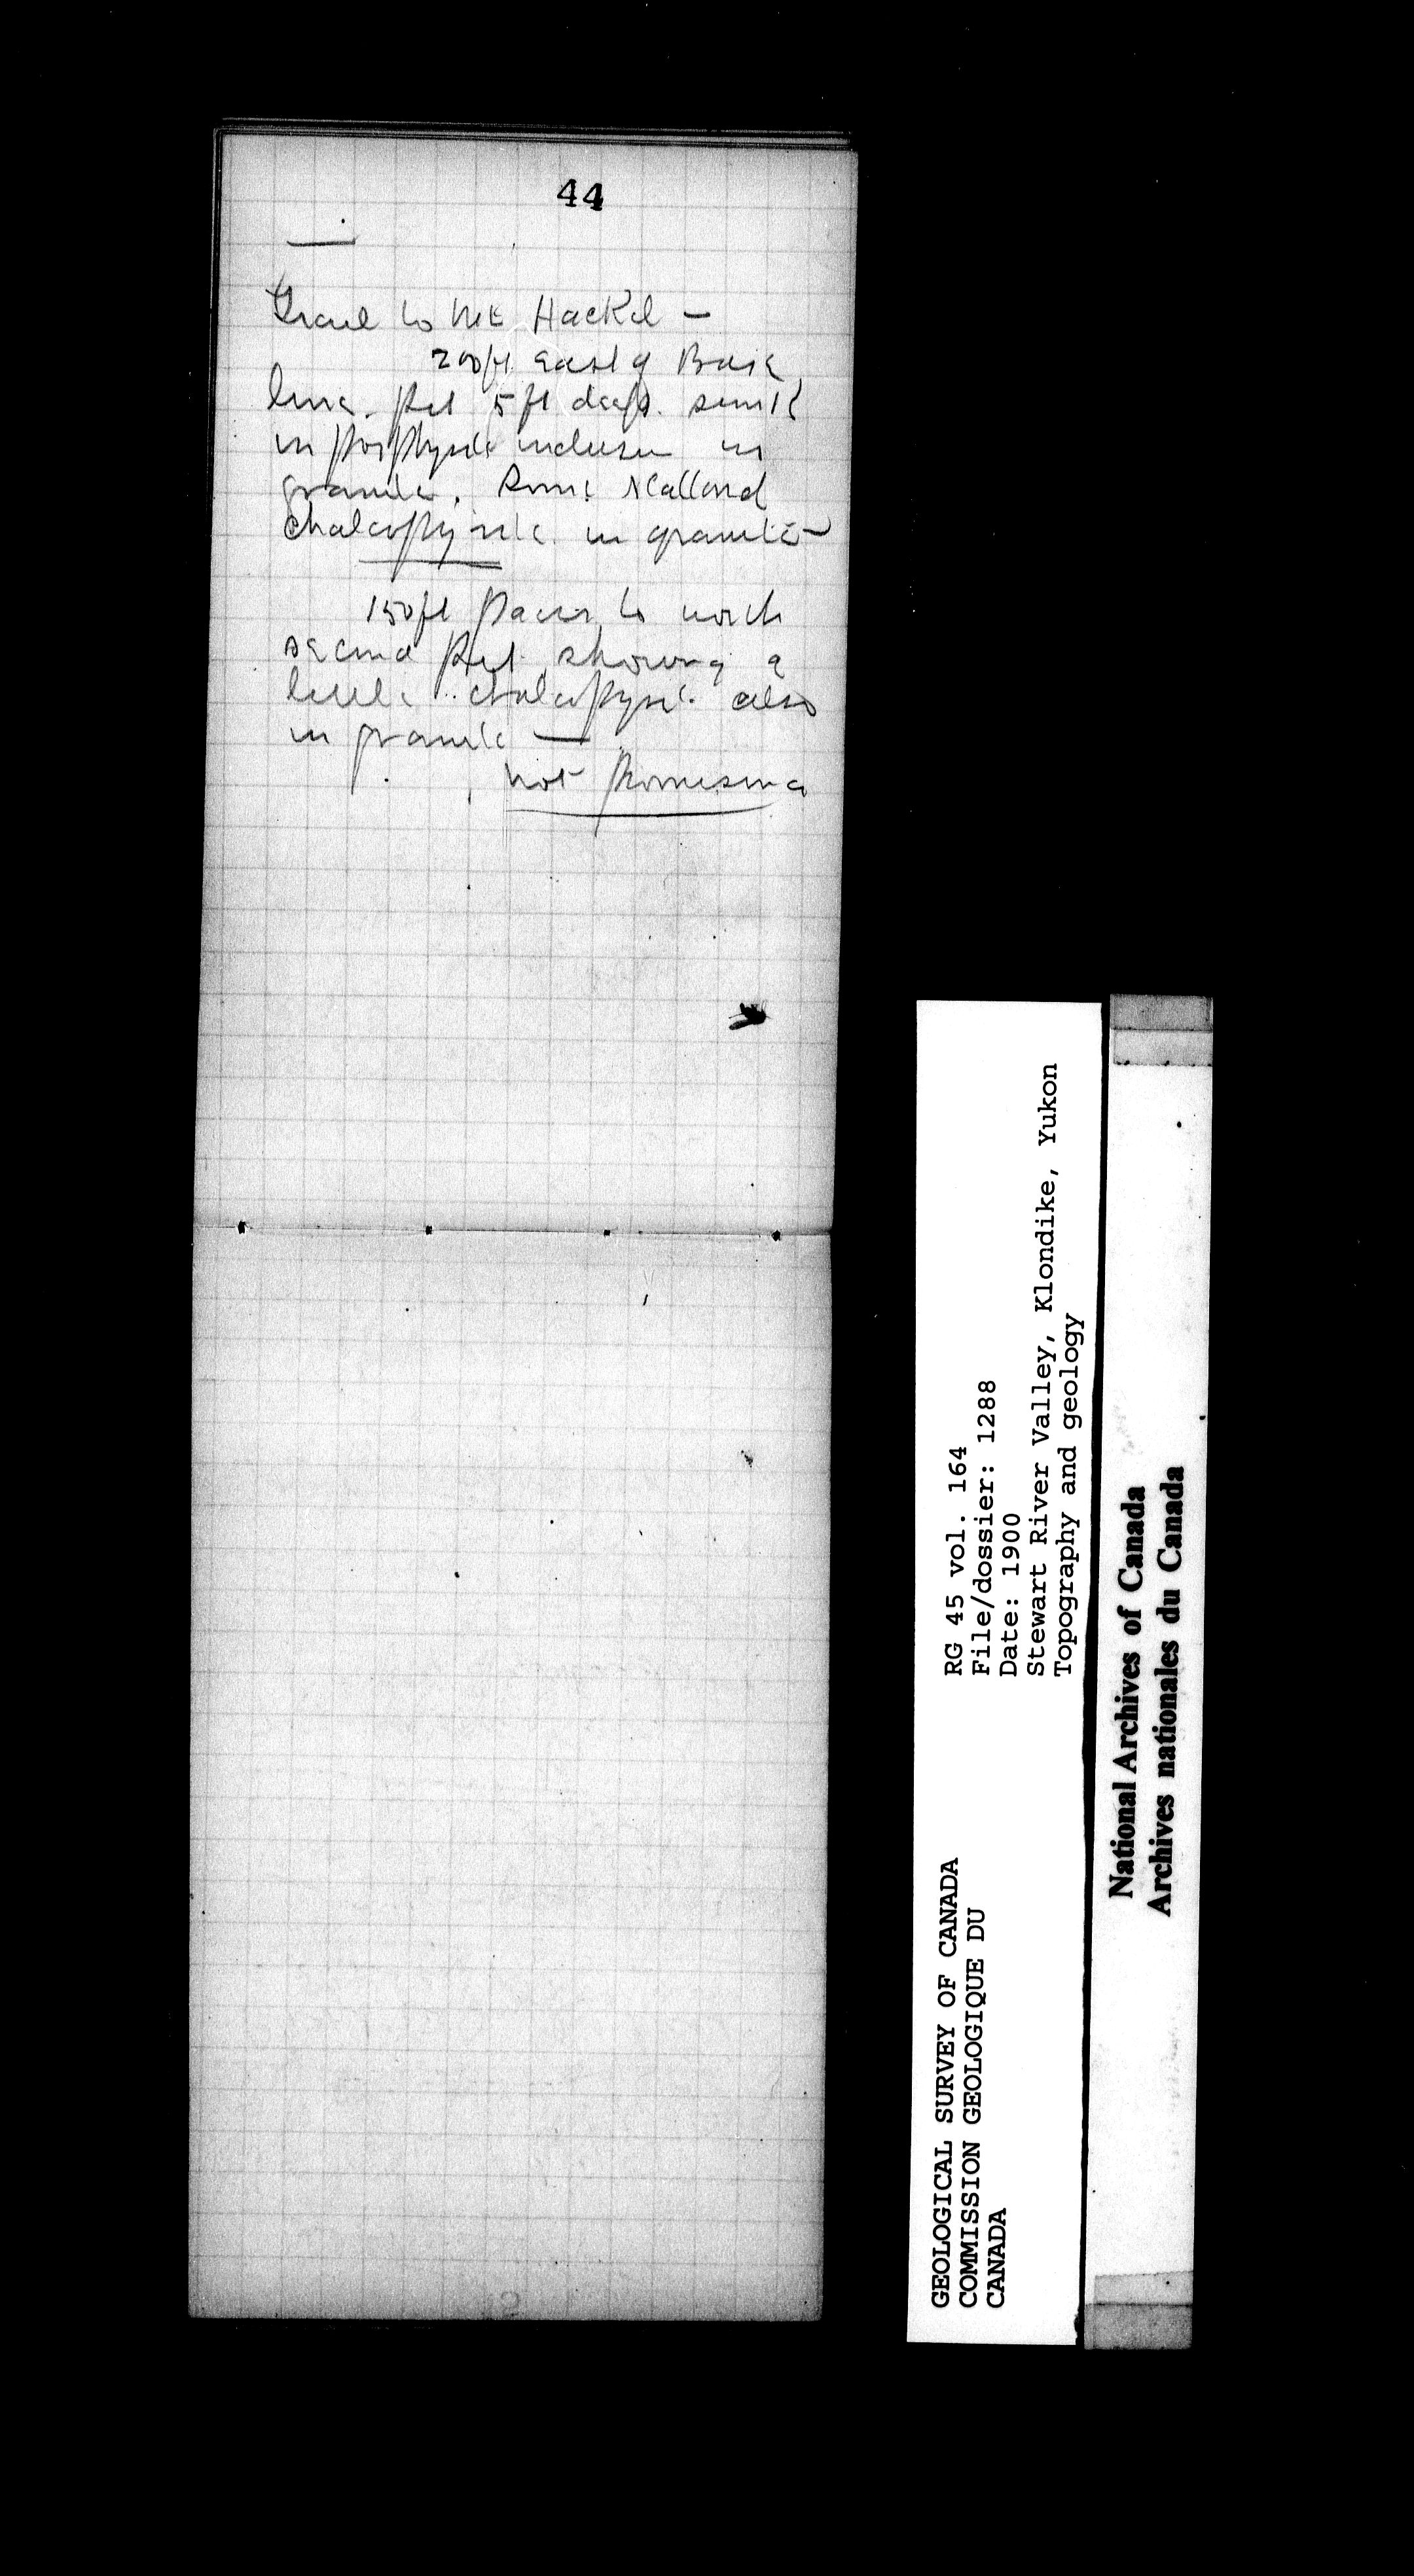 44
Trail to Mt Hackel —
200ft East of Base
line. Pit 5 ft deep. sunk
in porphyrite inclusion in
granite. Some scattered
chalcopyrite in granite —
150ft paces to north
second pit showing a
little chalcopyrite also
in granite —
not promising
GEOLOGICAL SURVEY OF CANADA
COMMISSION GEOLOGIQUE DU
CANADA
RG 45 vol. 164
File/dossier: 1288
Date: 1900
Stewart River Valley, Klondike, Yukon
Topography and geology
National Archives of Canada
Archives nationales du Canada